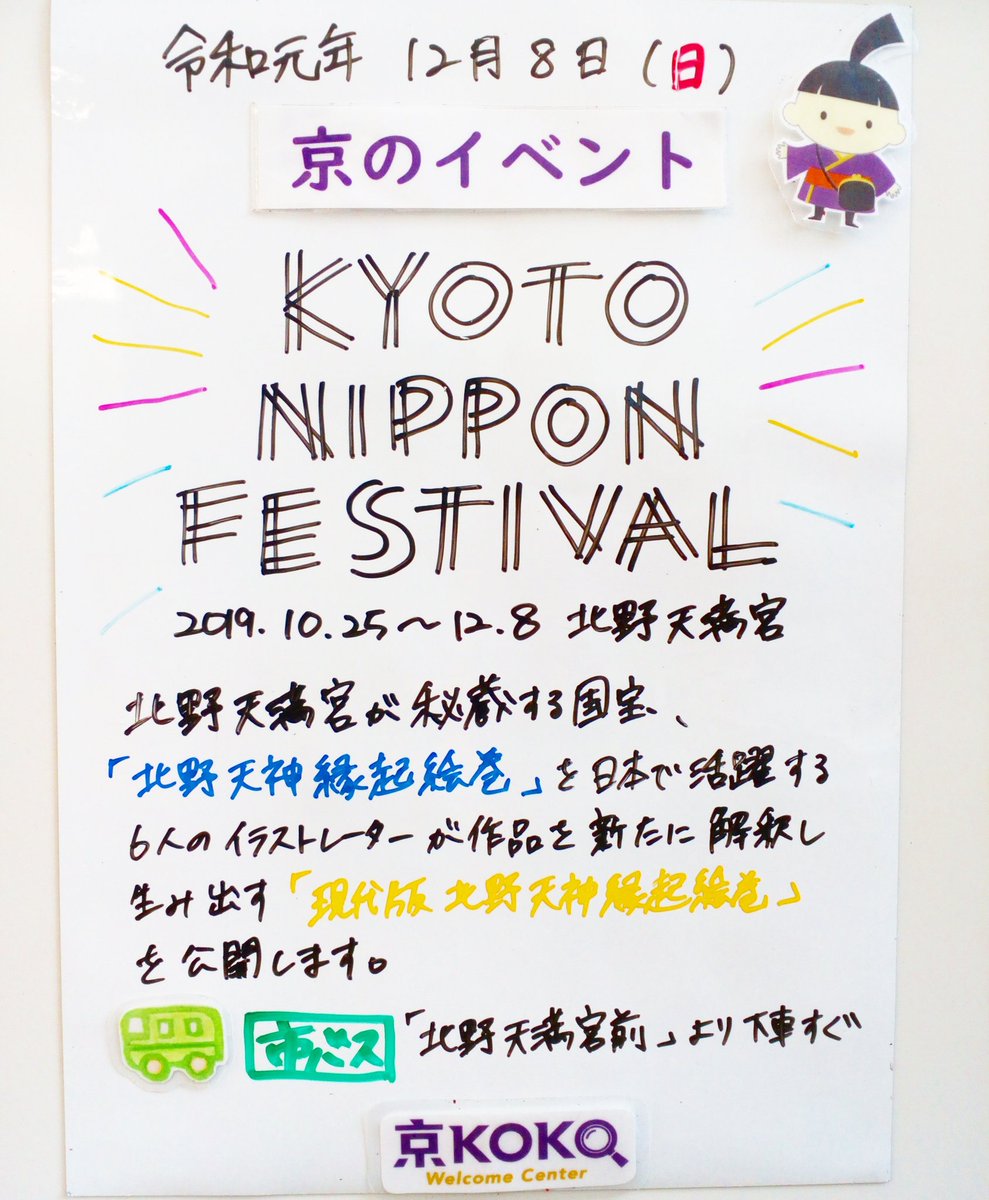 令和元年 12月8日(日)
京のイベント
KYOTO
NIPPON
FESTIVAL
2019.10.25〜12.8 北野天満宮
北野天満宮が秘蔵する国宝、
「北野天神縁起絵巻」を日本で活躍する
6人のイラストレーターが作品を新たに解釈し
生み出す「現代版 北野天神縁起絵巻」
を公開します。
市バス 「北野天満宮前」より下車すぐ
京KOKO
Welcome Center